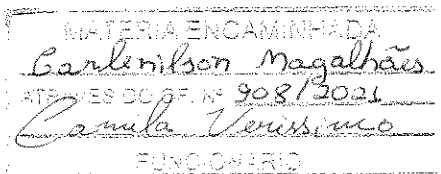 MATÉRIA ENCAMINHADA
Carlenilson Magalhães
ATRAVÉS DO OF. Nº 908/2021
Camila Verissimo
FUNCIONÁRIO